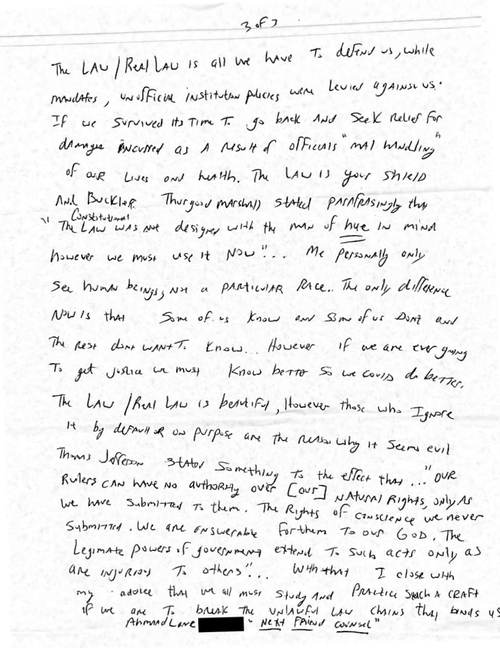 3 of 3
The LAW/Real Law is all we have To defend us, while
mandates, unofficial institution policies were levied against us.
If we survived its Time To go back And Seek Relief for
damages incurred as A result of officials "mal handling"
of our Lives and health. The Law is your shield
And Buckler Thurgood marshall stated paraphrasingly that
"The Constitutional LAW was not designed with the man of hue in mind
however we must use it NOW"... Me personally only
See human beings, not a particular Race... The only difference
Now is that Some of us Know and Some of us Dont and
The rest dont want To Know... However if we are ever going
To get Justice we must Know better So we could do better.
The LAW/Real Law is beautiful, However those who Ignore
it by default or on purpose are the reason why it Seems evil
Thomas Jefferson States Something To the effect that... "OUR
Rulers can have no authority over [our] Natural Rights, only As
we have Submitted to them. The Rights of conscience we never
Submitted. We are answerable for them to our God. The
Legitimate powers of government extend To Such acts only as
are injurious To others"... With that I close with
my advice that we all must Study And Practice Such a CRAFT
if we are To break The unlawful Law chains that binds us
Ahmad Lane "Next Friend Counsel"